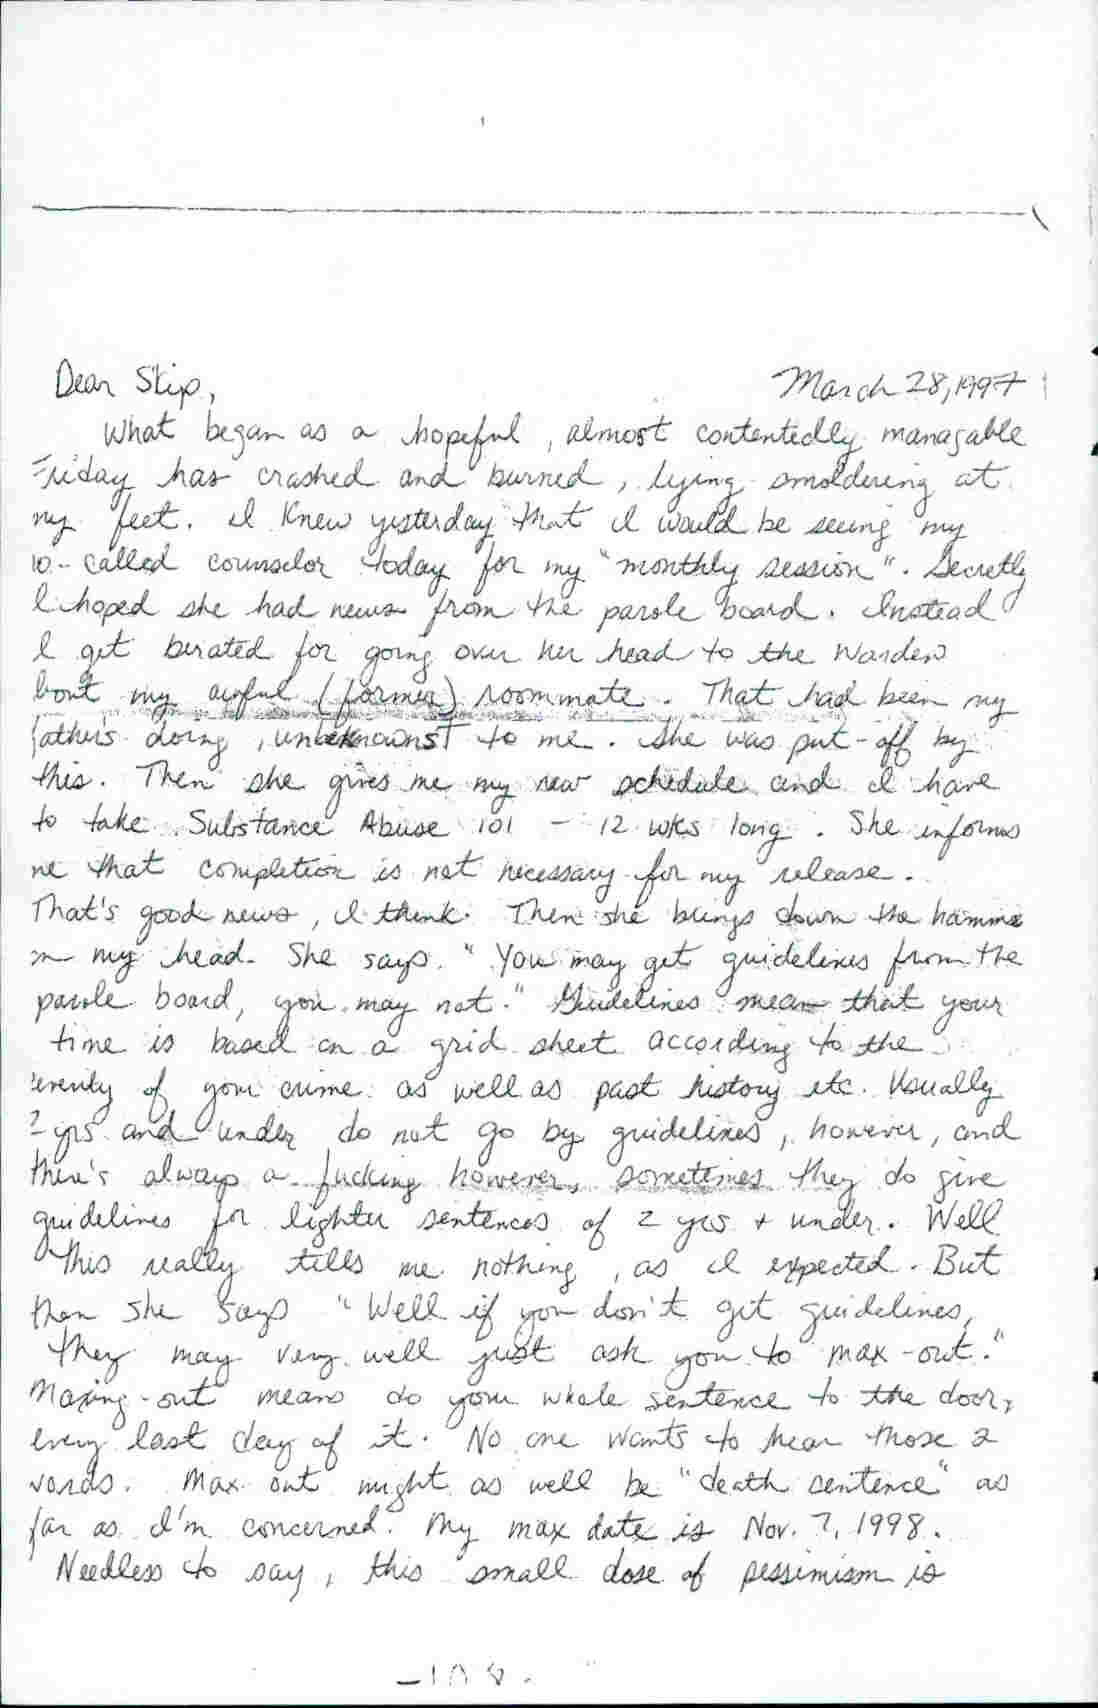 Dear Skip,
March 28, 1997
What began as a hopeful, almost contentedly managable
Friday has crashed and burned, lying smoldering at
my feet. I knew yesterday that I would be seeing my
so-called counselor today for my "monthly session". Secretly
I hoped she had news from the parole board. Instead
I get berated for going over her head to the Warden
bout my awful (former) roommate. That had been my
father's doing, unbeknownst to me. She was put-off by
this. Then she gives me my new schedule and I have
to take Substance Abuse 101 - 12 wks long. She informs
me that completion is not necessary for my release.
That's good news, I think. Then she brings down the hamme
on my head. She says "You may get guidelines from the
parole board, you may not." Guidelines mean that your
time is based on a grid sheet according to the
everity of your crime as well as past history etc. Usually
2 yrs and under do not go by guidelines, however, and
there's always a fucking however, sometimes they do give
guidelines for lighter sentences of 2 yrs + under. Well
this really tells me nothing, as I expected. But
then she says "Well if you don't get guidelines,
they may very well just ask you to max-out."
Maxing-out means do your whole sentence to the door,
every last day of it. No one wants to hear those 2
words. Max out might as well be "death sentence" as
far as I'm concerned. My max date is Nov. 7, 1998.
Needless to say, this small dose of pessimism is
-108-